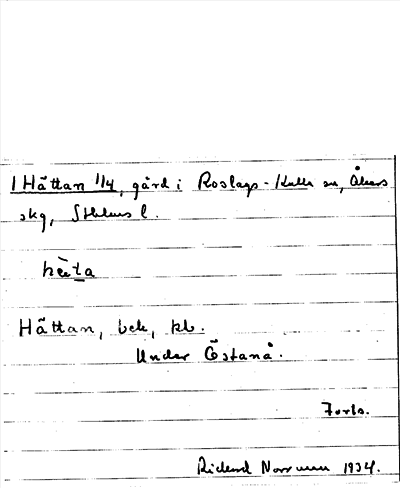 1 Håttan 1/4, gård i Roslags-Kulla sn, Åkers
skg, Sthlms l.
hèta
Håttan, bek, kb.
Under Östanå.
Forts.
Rickard Norrman 1934.